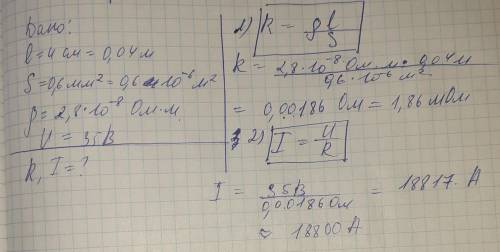 Дано:
l=4 см = 0,04 м
S=0,6 мм² = 0,6 · 10⁻⁶ м²
ρ= 2,8·10⁻⁸ Ом·м.
U = 35В
R, I = ?
1) R = ρl/S
R = 2,8·10⁻⁸ Ом·м · 0,04 м / 0,6·10⁻⁶ м²
= 0,00186 Ом = 1,86 мОм
2) I = U/R
I = 35В / 0,00186 Ом = 18817 А
≈ 18800 А